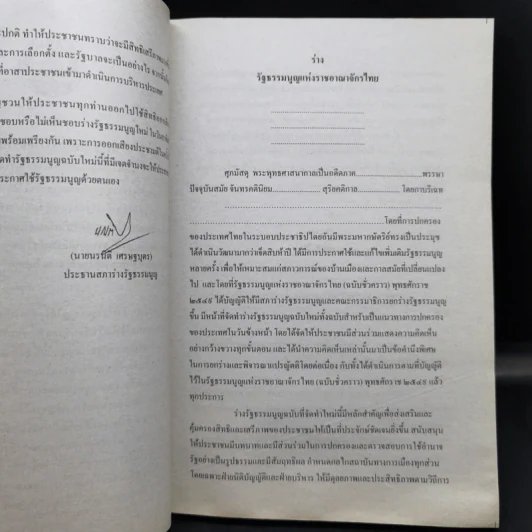 ปกติ ทำให้ประชาชนทราบว่าจะมีสิทธิเสรีภาพ
และการเลือกตั้ง และรัฐบาลจะเป็นอย่างไร
ที่อาสาประชาชนเข้ามาดำเนินการบริหารประเทศ
ชวนให้ประชาชนทุกท่านออกไปใช้สิทธิ
ชอบหรือไม่เห็นชอบร่างรัฐธรรมนูญใหม่
พร้อมเพรียงกัน เพราะการออกเสียงประชามติ
จัดทำรัฐธรรมนูญฉบับใหม่นี้ที่มีเจตจำนงจะให้
ประกาศใช้รัฐธรรมนูญด้วยตนเอง
(นายนรนิติ เศรษฐบุตร)
ประธานสภาร่างรัฐธรรมนูญ
ร่าง
รัฐธรรมนูญแห่งราชอาณาจักรไทย
ศุภมัสดุ พระพุทธศาสนากาลเป็นอดีตภาค.....................พรรษา
ปัจจุบันสมัย จันทรคตินิยม.................... สุริยคติกาล.................... โดยกาลบริเฉท
.....................โดยที่การปกครอง
ของประเทศไทยในระบอบประชาธิปไตยอันมีพระมหากษัตริย์ทรงเป็นประมุข
ได้ดำเนินวัฒนามากว่าเจ็ดสิบห้าปี ได้มีการประกาศใช้และแก้ไขเพิ่มเติมรัฐธรรมนูญ
หลายครั้ง เพื่อให้เหมาะสมแก่สภาวการณ์ของบ้านเมืองและกาลสมัยที่เปลี่ยนแปลง
ไป และโดยที่รัฐธรรมนูญแห่งราชอาณาจักรไทย (ฉบับชั่วคราว) พุทธศักราช
๒๕๔๙ ได้บัญญัติให้มีสภาร่างรัฐธรรมนูญและคณะกรรมาธิการยกร่างรัฐธรรมนูญ
ขึ้น มีหน้าที่จัดทำร่างรัฐธรรมนูญฉบับใหม่ทั้งฉบับสำหรับเป็นแนวทางการปกครอง
ของประเทศในวันข้างหน้า โดยได้จัดให้ประชาชนมีส่วนร่วมแสดงความคิดเห็น
อย่างกว้างขวางทุกขั้นตอน และได้นำความคิดเห็นเหล่านั้นมาเป็นข้อคำนึงพิเศษ
ในการยกร่างและพิจารณาแปรญัตติโดยต่อเนื่อง กับทั้งได้ดำเนินการตามที่บัญญัติ
ไว้ในรัฐธรรมนูญแห่งราชอาณาจักรไทย (ฉบับชั่วคราว) พุทธศักราช ๒๕๔๙ แล้ว
ทุกประการ
ร่างรัฐธรรมนูญฉบับที่จัดทำใหม่นี้มีหลักสำคัญเพื่อส่งเสริมและ
คุ้มครองสิทธิและเสรีภาพของประชาชนให้เป็นที่ประจักษ์ชัดเจนยิ่งขึ้น สนับสนุน
ให้ประชาชนมีบทบาทและมีส่วนร่วมในการปกครองและตรวจสอบการใช้อำนาจ
รัฐอย่างเป็นรูปธรรมและมีสัมฤทธิผล กำหนดกลไกสถาบันทางการเมืองทุกส่วน
โดยเฉพาะฝ่ายนิติบัญญัติและฝ่ายบริหาร ให้มีดุลยภาพและประสิทธิภาพตามวิถีการ